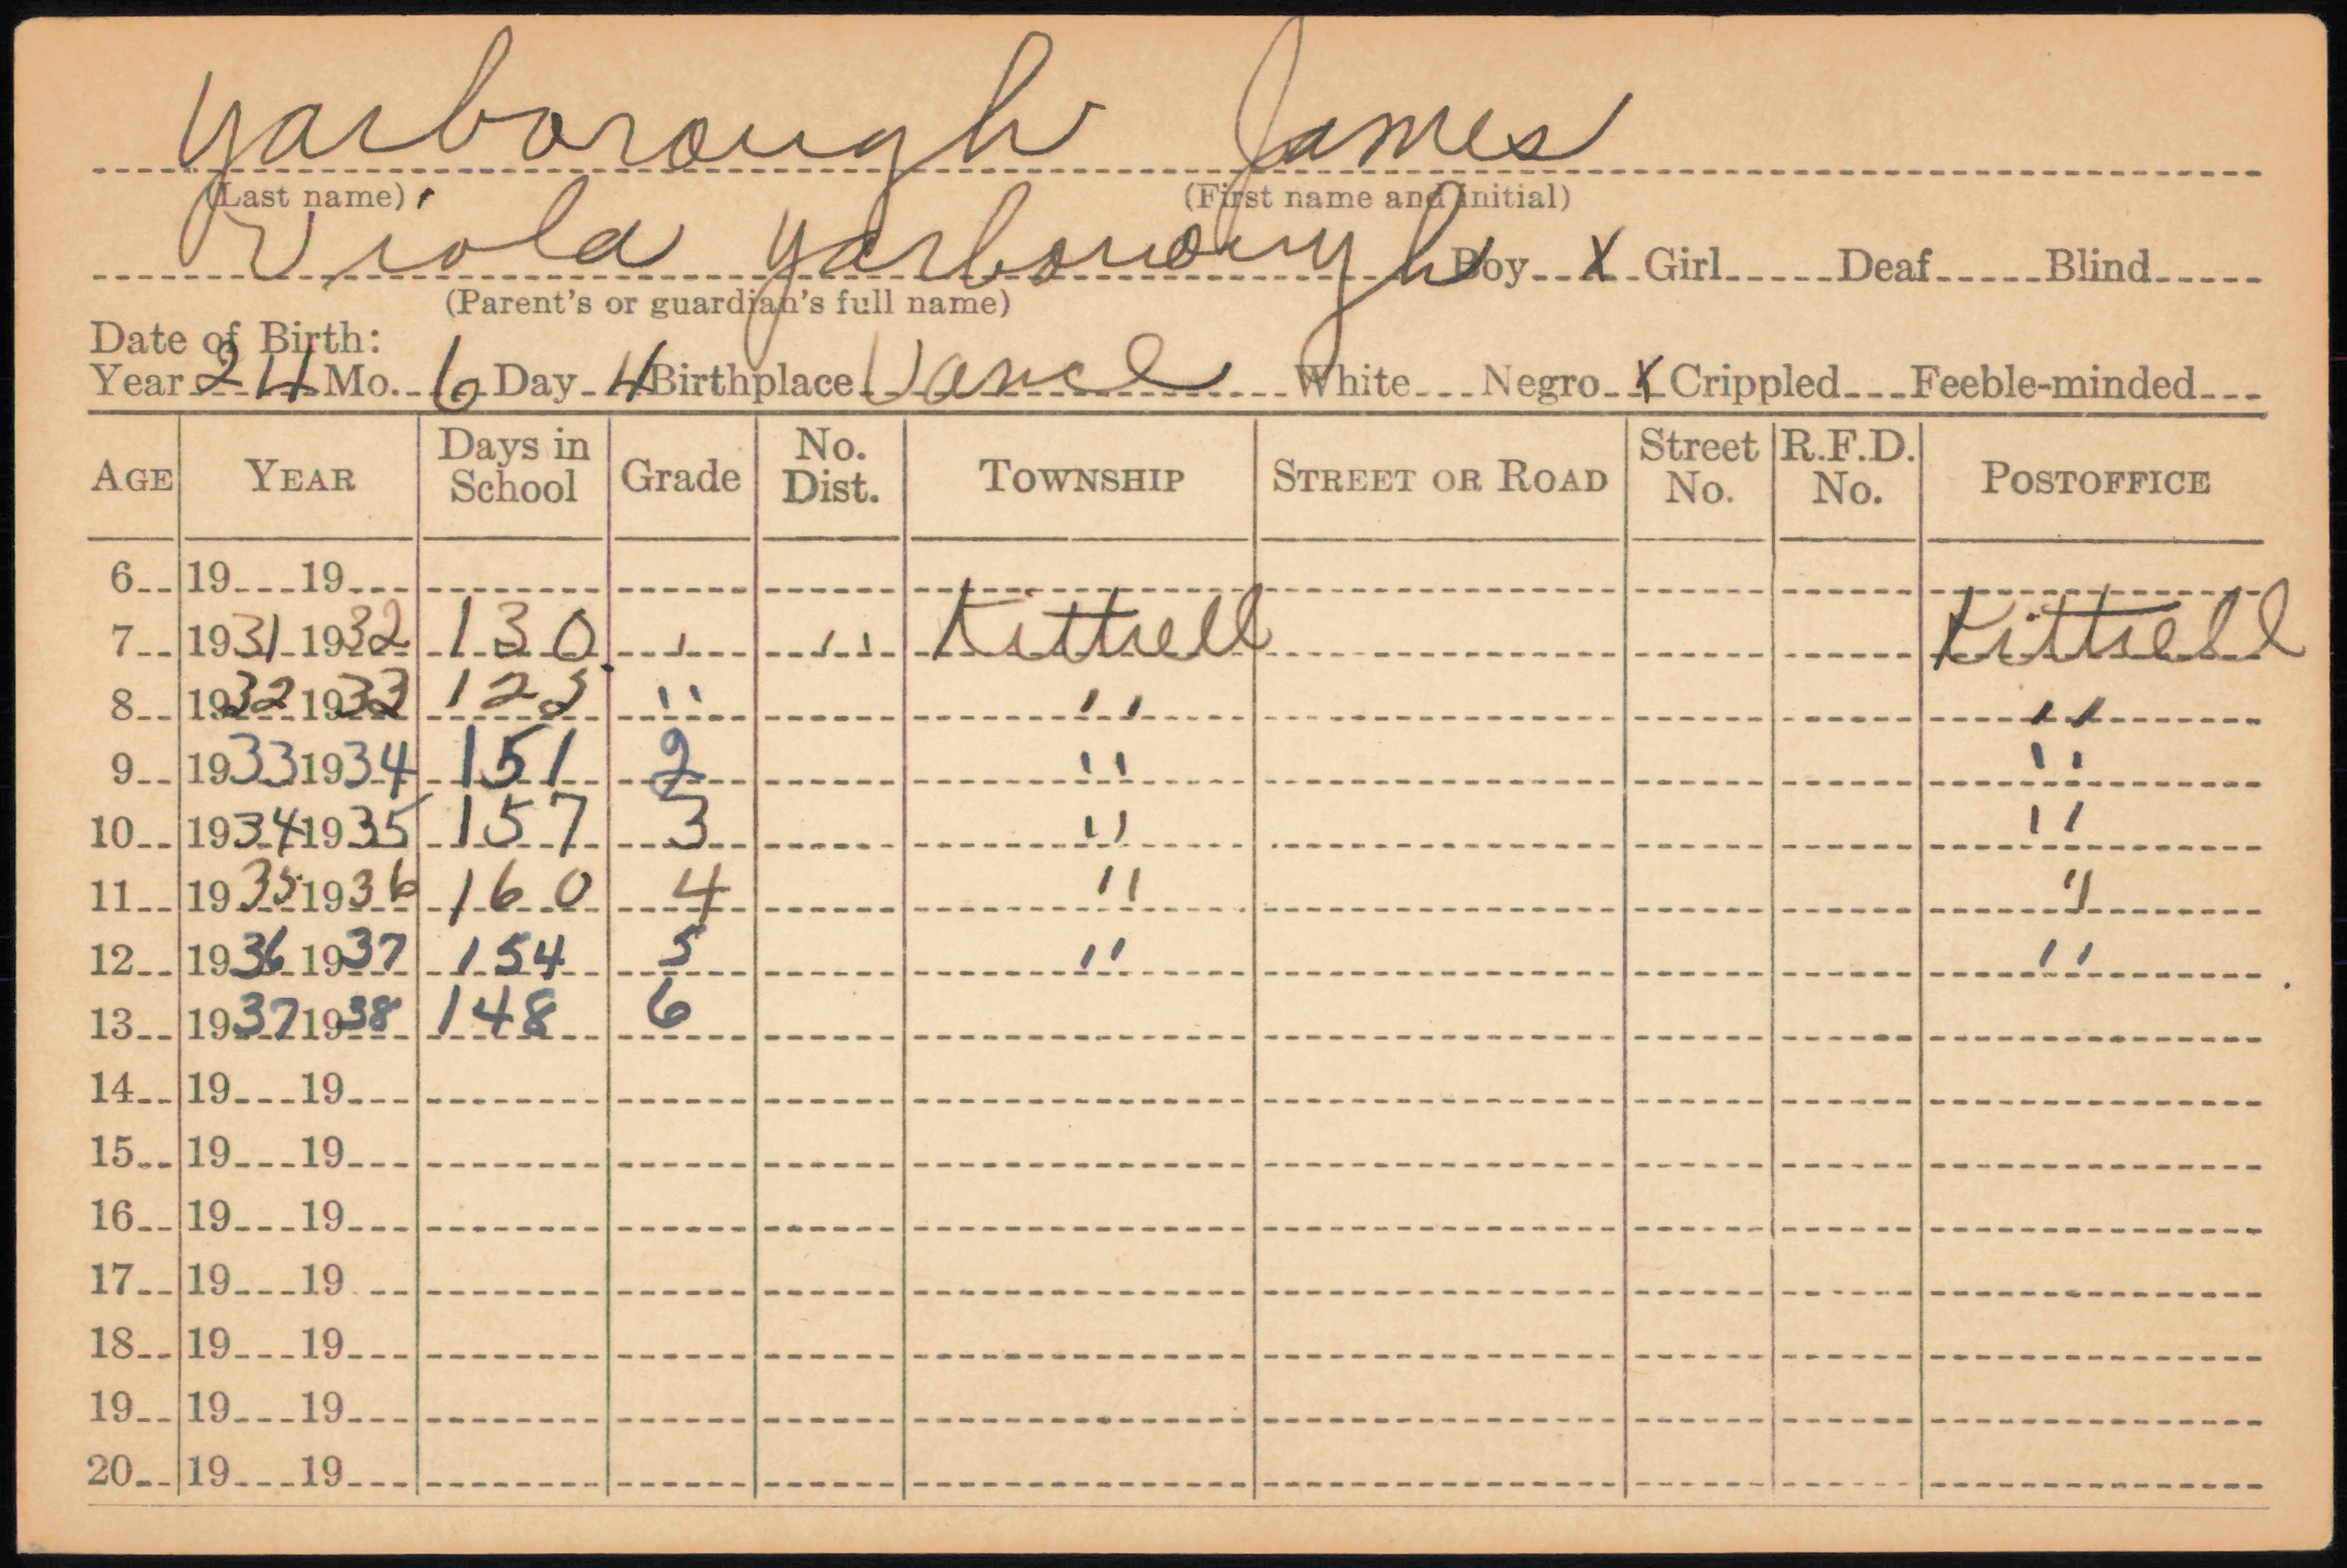 Yarborough James
(Last name) (First name and initial)
Viola Yarborough Boy X Girl Deaf Blind
(Parent's or guardian's full name)
Date of Birth:
Year 24 Mo. 6 Day 4 Birthplace Vance White Negro X Crippled Feeble-minded
AGE YEAR Days in School Grade No. Dist. TOWNSHIP STREET OR ROAD Street No. R.F.D. No. POSTOFFICE
6 19 19
7 1931 1932 130 1 11 Kittrell Kittrell
8 1932 1933 123 " " "
9 1933 1934 151 2 " "
10 1934 1935 157 3 " "
11 1935 1936 160 4 " "
12 1936 1937 154 5 " "
13 1937 1938 148 6
14 19 19
15 19 19
16 19 19
17 19 19
18 19 19
19 19 19
20 19 19